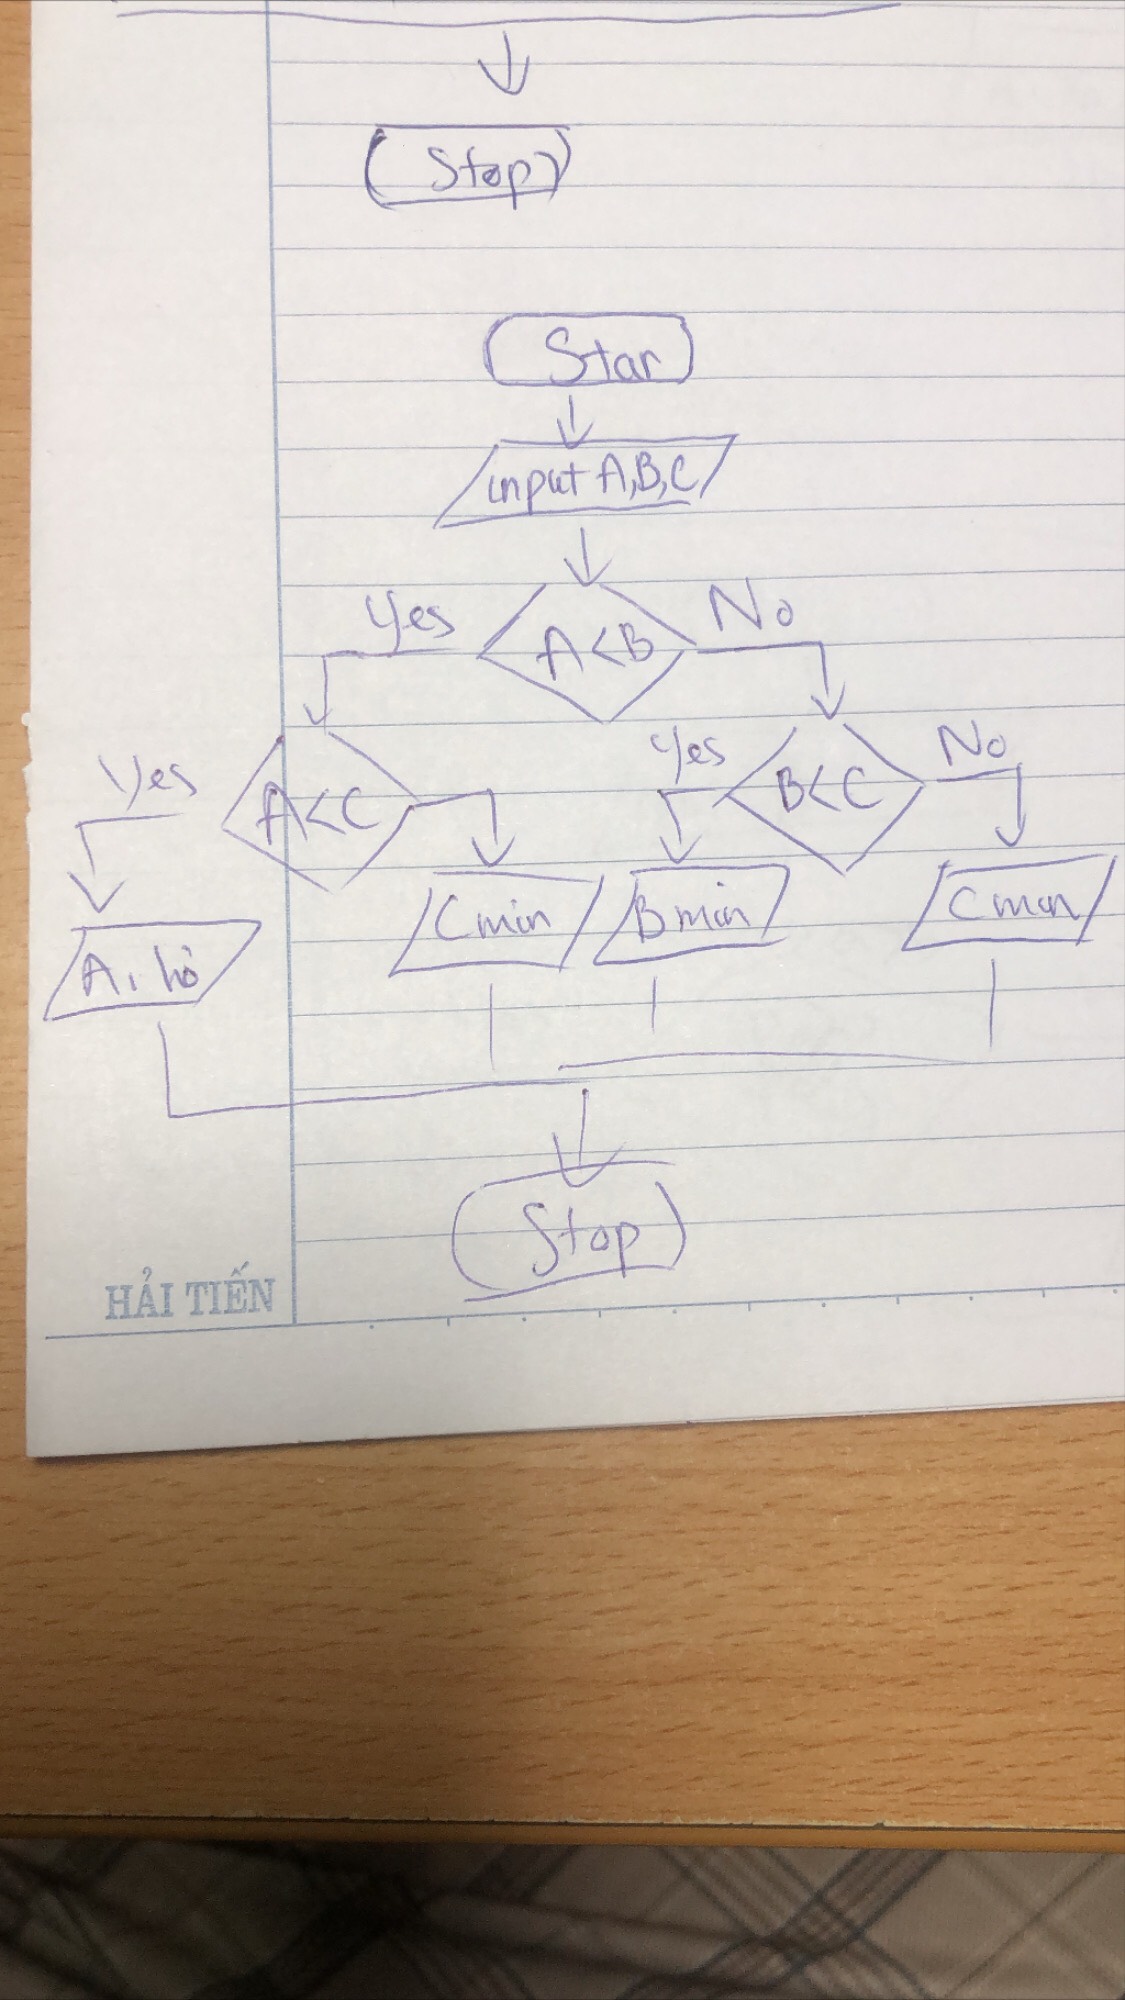 Stop
Star
input A,B,C
Yes
A<B
No
Yes
A<C
Yes
B<C
No
A
C min
B min
C min
Stop
HẢI TIẾN